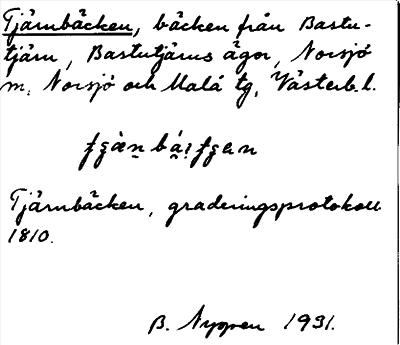 Tjärnbäcken, bäcken från Bastu-
tjärn, Bastutjärns ägor, Norsjö
m, Norsjö och Malå tg, Västerb. l.
Tjärnbäcken, graderingsprotokoll
1810.
B. Nygren 1931.